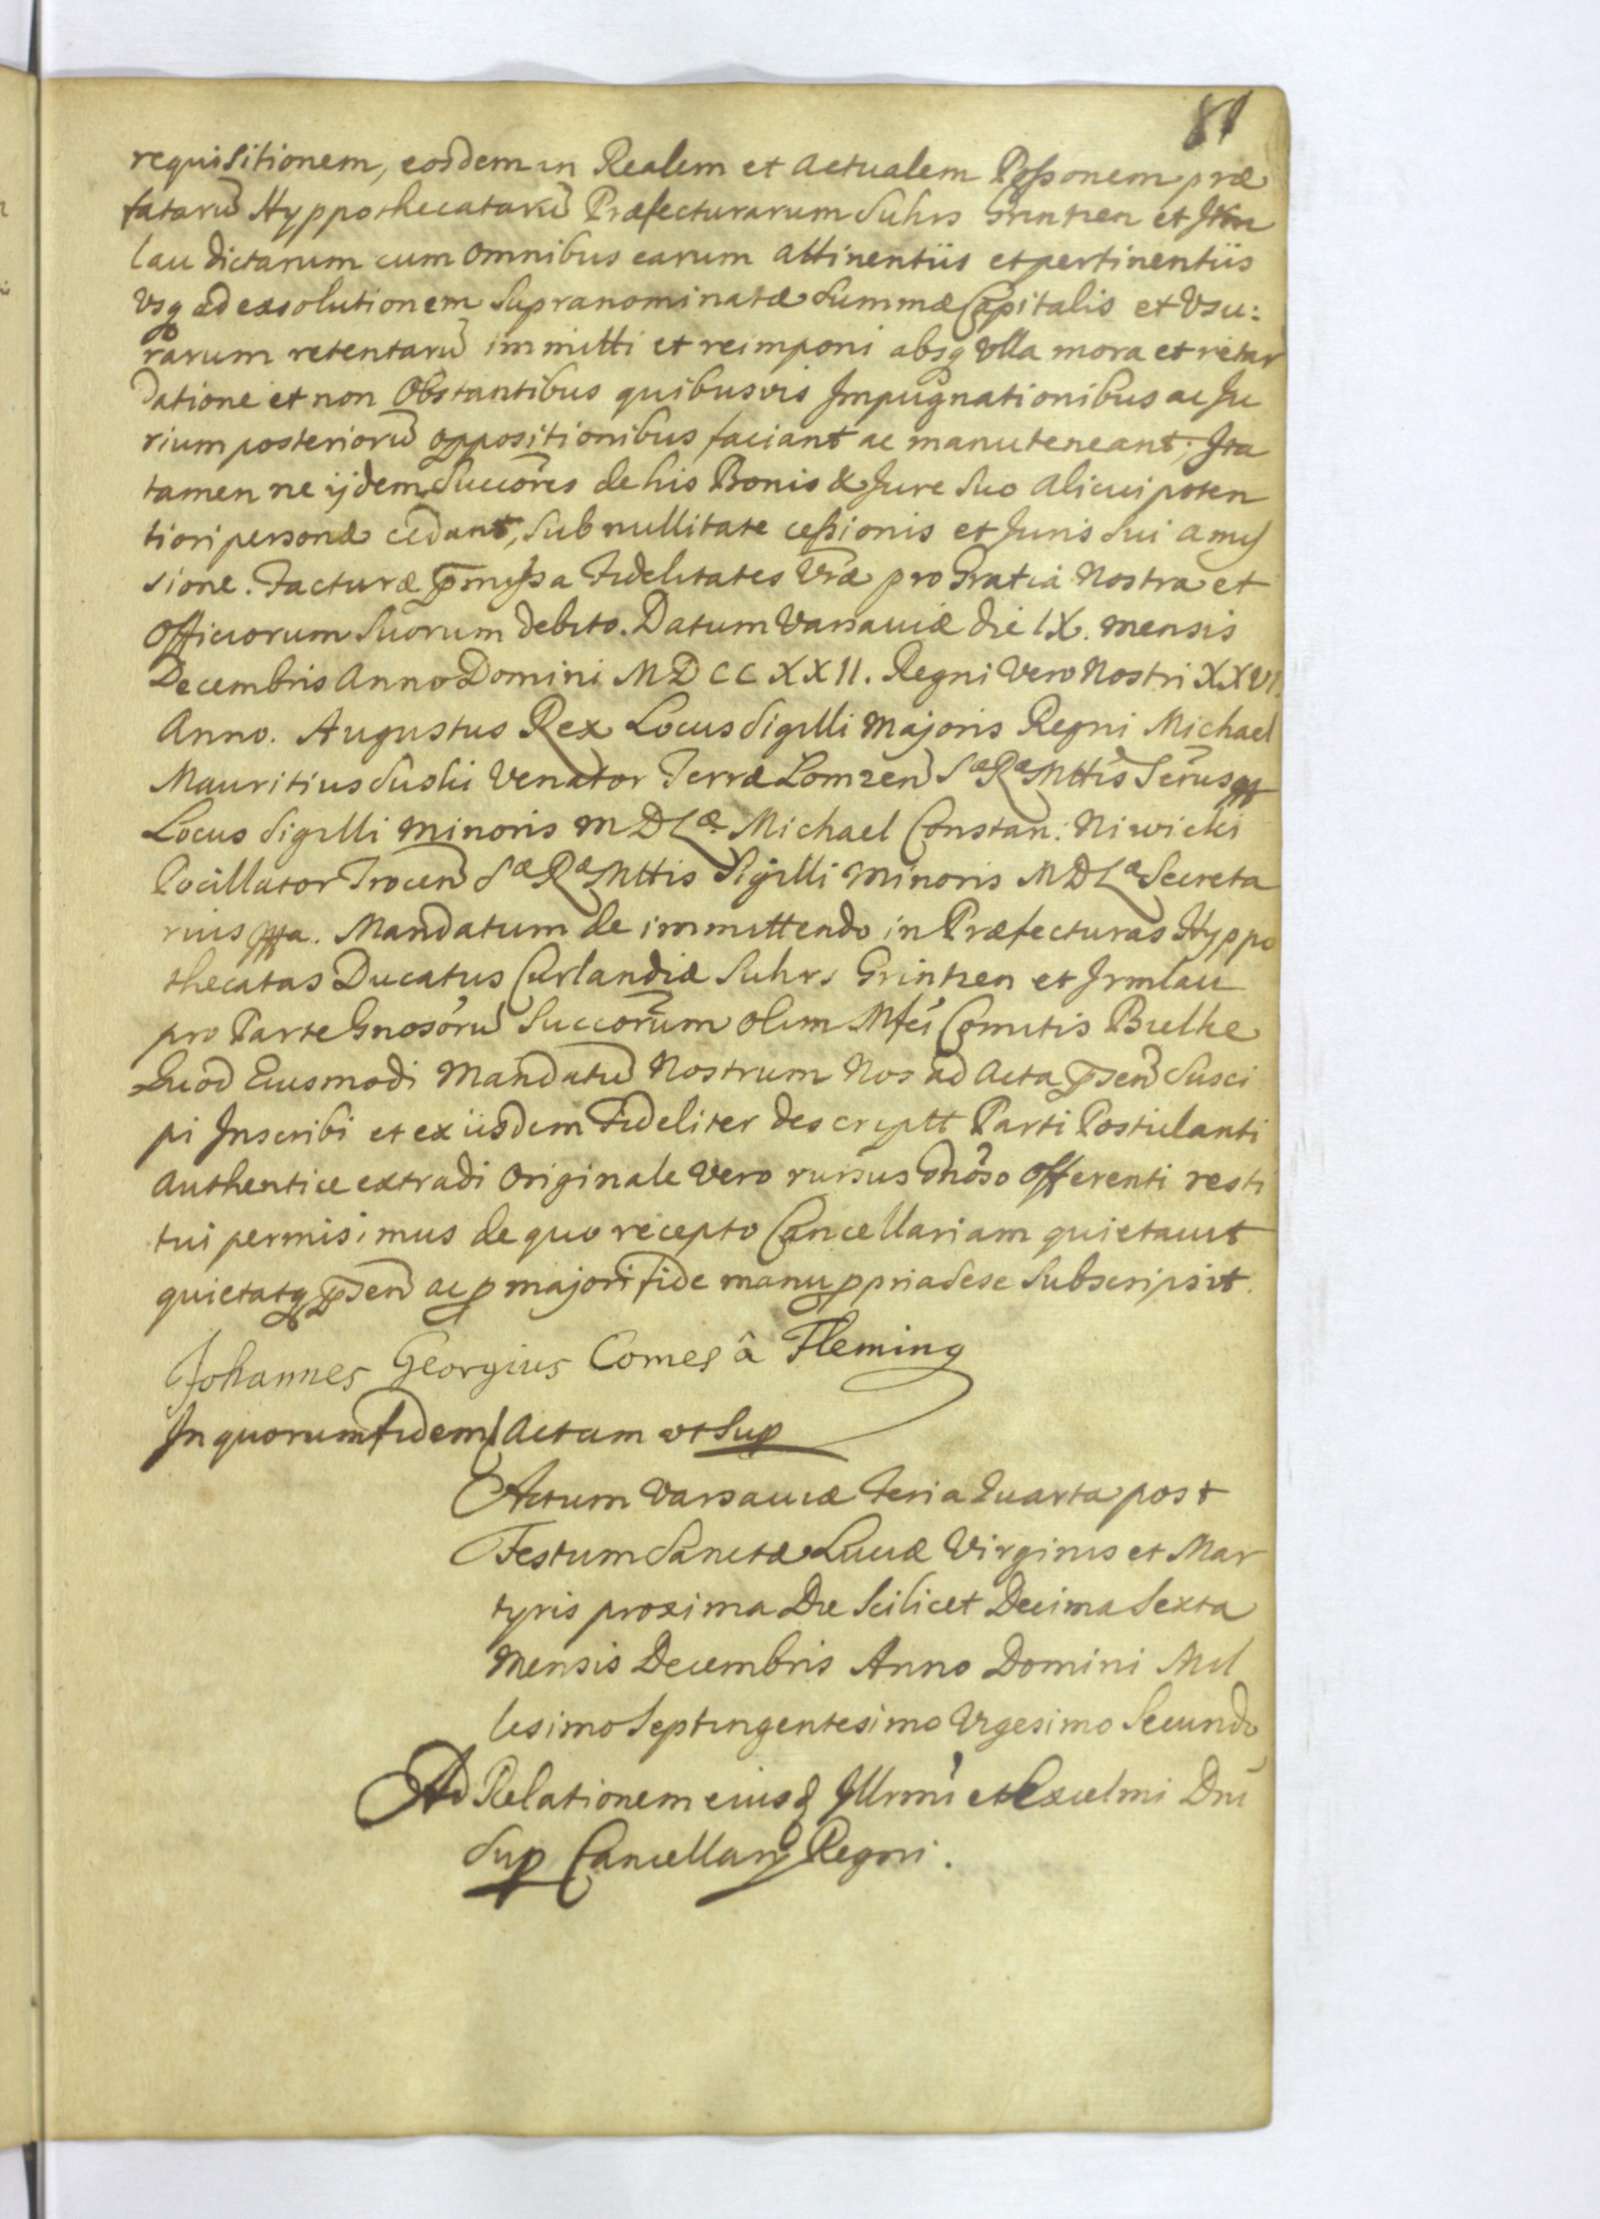 81
requisitionem, eosdem in Realem et actualem Possonem præ
fatarū Hyppothecatarū Præfecturarum Suhrs Grintzen et Irm
lau dictarum cum omnibus earum attinentiis et pertinentiis
Vsq ad exsolutionem supranominatæ summæ Capitalis et Vsu:
rarum retentarū immitti et reimponi absq Vlla mora et retar
datione et non Obstantibus quibusvis Impugnationibus ac Ju
rium posteriorū oppositionibus faciant ac manuteneant; Ita
tamen ne ijdem Succōres de his Bonis & Jure suo alicui poten
tiori personæ cedant, sub nullitate cessionis et Juris sui amis
sione. Facturæ p̄missa Fidelitates Vræ pro Gratia Nostra et
officiorum suorum debito. Datum Varsaviæ die IX. mensis
Decembris Anno Domini MDCCXXII. Regni Vero Nostri XXVI.
Anno. Augustus Rex Locus Sigilli Majoris Regni Michael
Mauritius Suski Venator Terræ Lomzen̄ Sæ Ræ Mttis Secr̄us
Locus Sigilli Minoris MDLæ Michael Constan: Niwicki
Pocillator Trocen̄ Sæ Ræ Mttis Sigilli Minoris MDLæ Secreta
rius mppa. Mandatum de immittendo in Præfecturas Hyppo
thecatas Ducatus Curlandiæ Suhrs Grintzen et Irmlau
pro Parte Gnosōrū Succorūm olim Mfci Comitis Bielke
Quod Eiusmodi Mandatū Nostrum Nos ad Acta p̄sen̄ Susci
pi Inscribi et ex iisdem Fideliter descriptt Parti Postulanti
Authentice extradi Originale Vero rursus Gnōso Offerenti resti
tui permisimus de quo recepto Cancellariam quietauit
quietatq p̄sen̄ ac p majori fide manu ppria sese Subscripsit.
Johannes Georgius Comes â Fleming
In quorum fidem / Actum vt Sup
Actum Varsaviæ Feria Quarta post
Festum Sanctæ Luciæ Virginis et Mar
tyris proxima Die Scilicet Decima Sexta
Mensis Decembris Anno Domini Mil
lesimo Septingentesimo Vigesimo Secundo
Ad Relationem eiusd Illrmi et Excelmi Dni
Sup Cancellarij Regni.